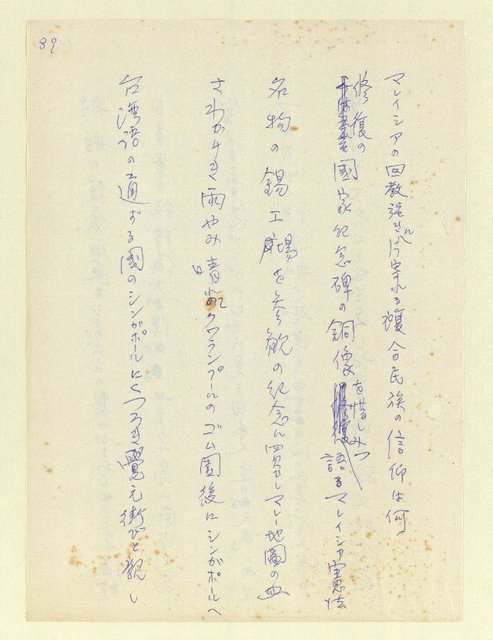 89
マレイシアの回教強き国に寄れる複合民族の信仰は何
修復の国家紀念碑の銅像を惜しみつ語るマレイシア憲法
名物の錫工場を参観の紀念に買ひしマレー地図の皿
さわがしき雨やみ晴れのクワランプールのゴム園後にシンガポールへ
台湾語の通ずる国のシンガポールにくつろぎ覚え街びと親し